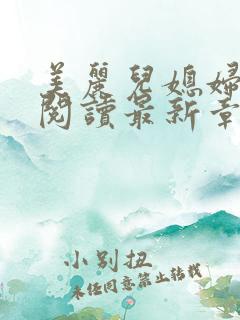 美麗兒媳婦
閱讀最新章
小别扭
未经同意禁止转载